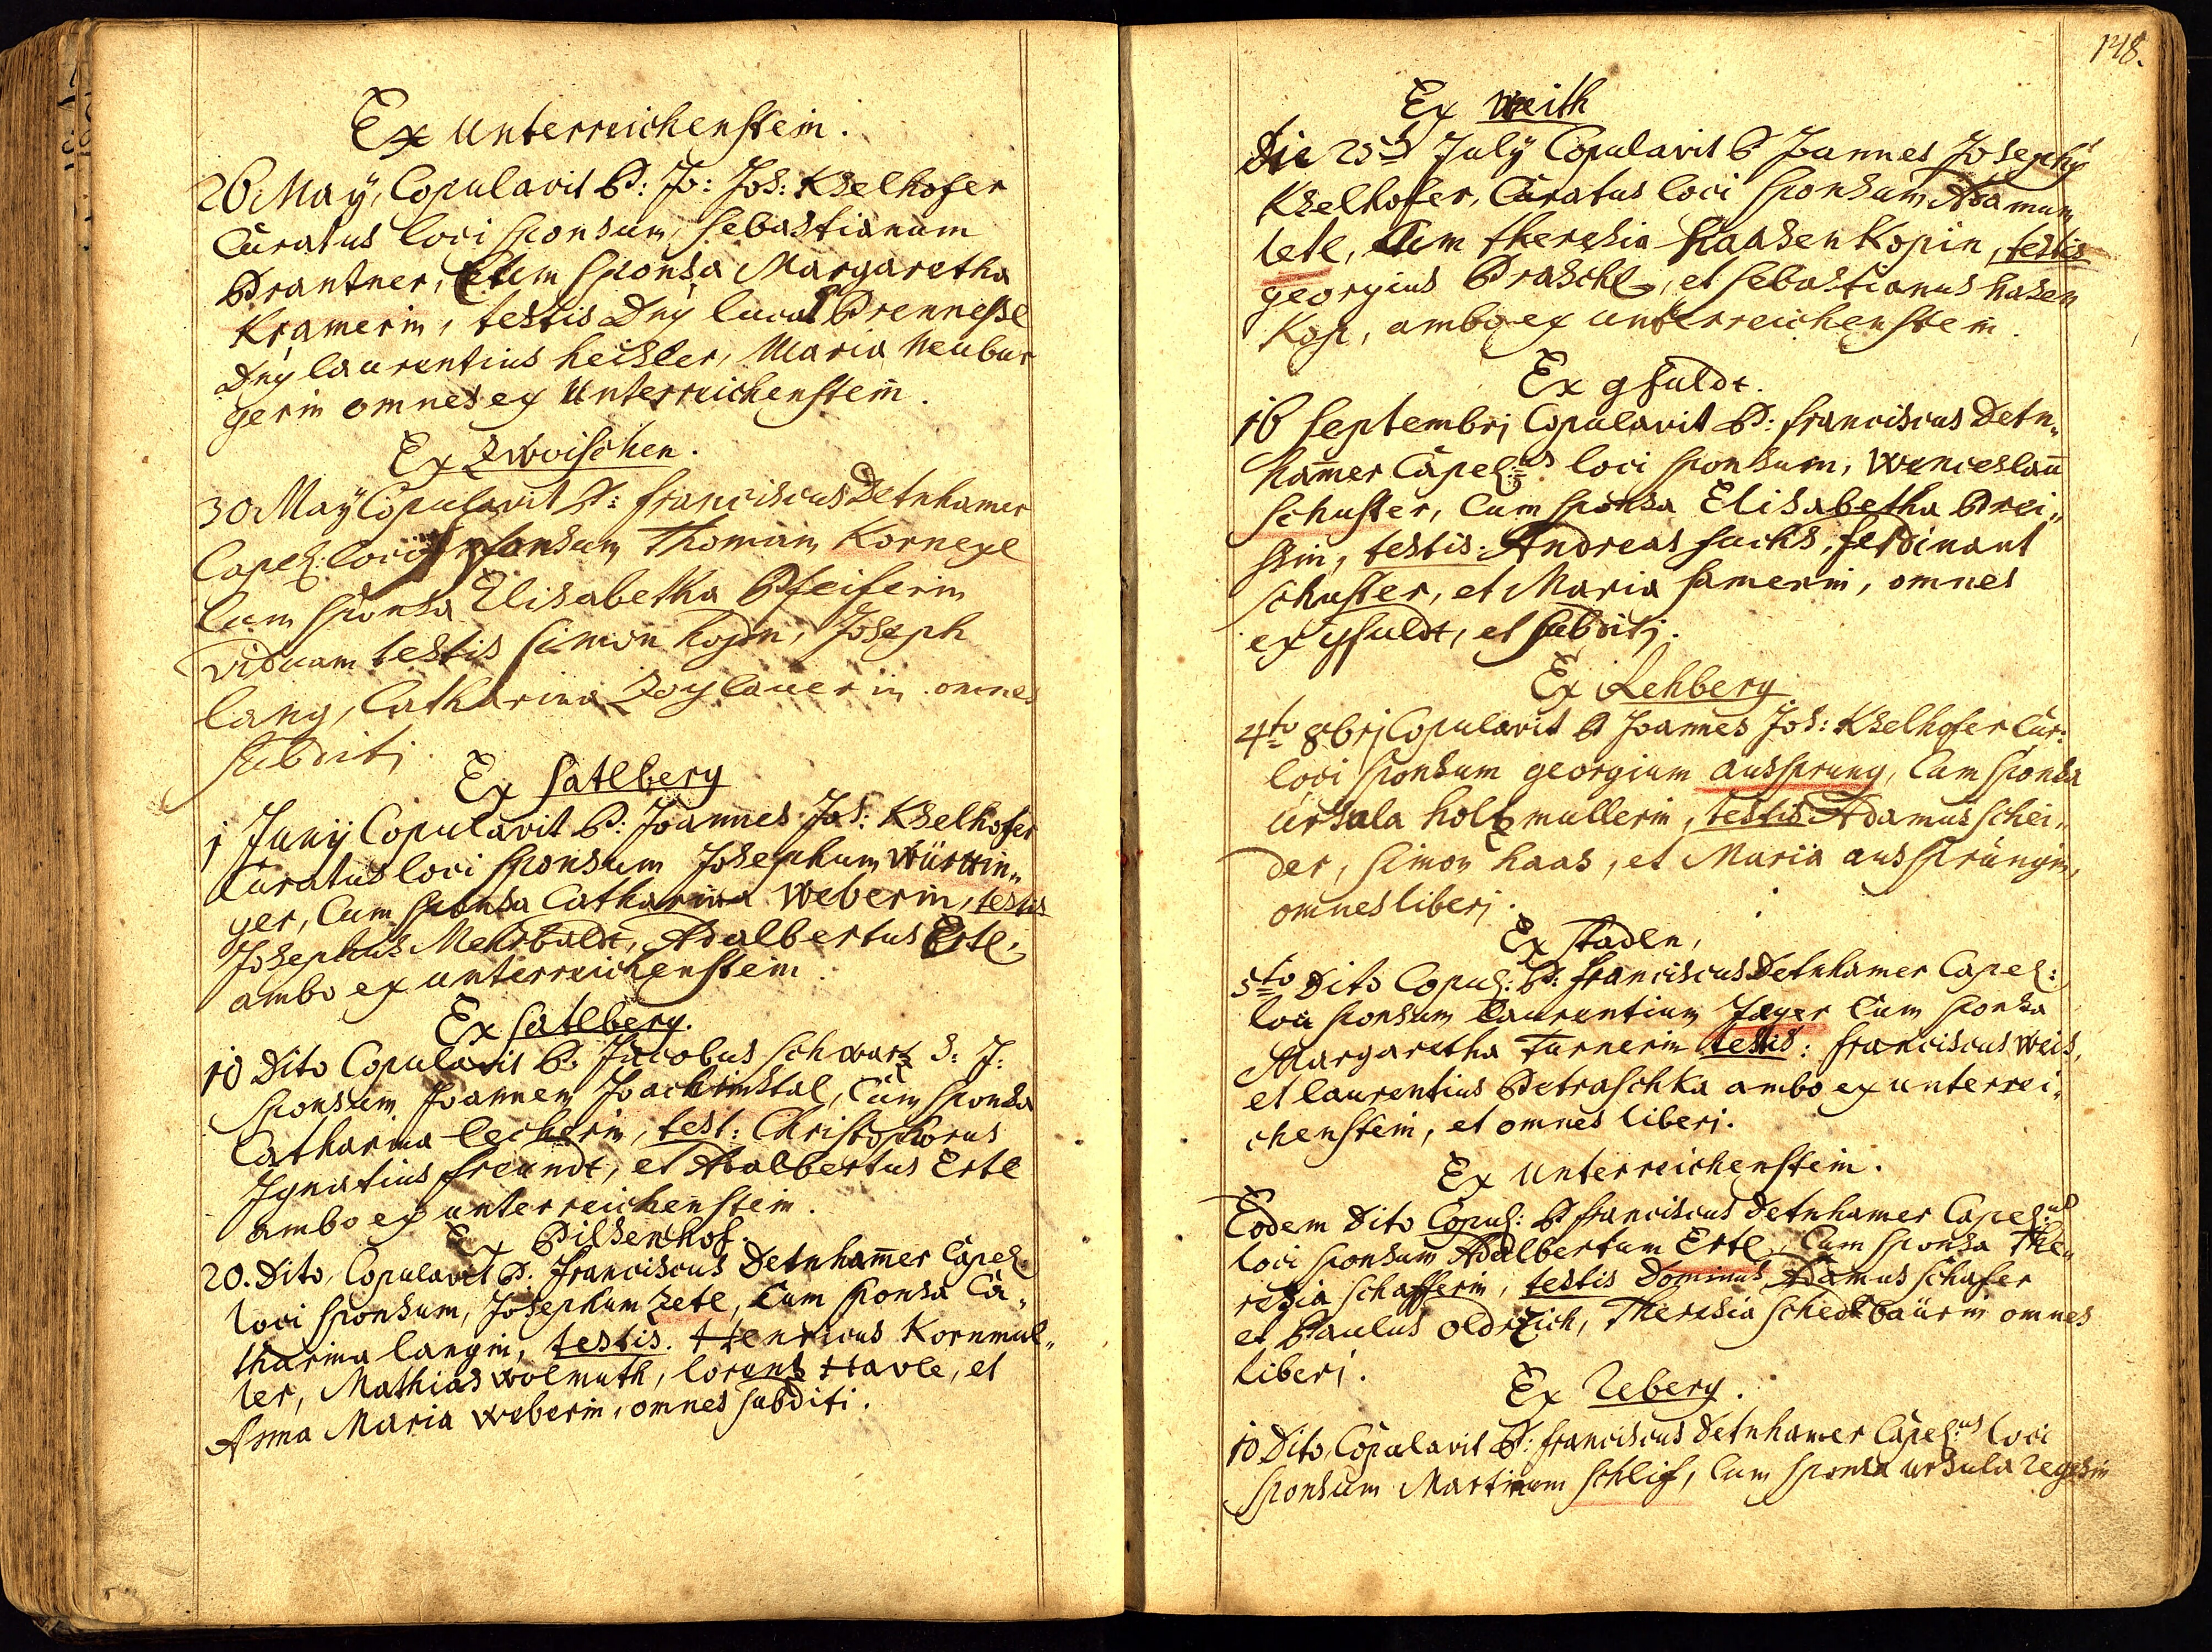 Ex Unterreichenstein.
26 Maÿ, Copulavit P: Jo: Jos: Kselhofer
Curatus loci sponsum, Sebastianum
Prantner, Cum sponsa Margaretha
Kramerin, testis Dnÿ lucas Brennessl
Dnÿ laurentius heisler, Maria Neubur
gerin omnes ex Unterreichenstein.
Ex Zwoischen.
30 Maÿ Copulavit P: franciscus Detnhamer
Capel: loci sponsum Thomam Kornexl
Cum sponsa Elisabetha Pfeiferin
viduam testis Simon hopn, Joseph
lang, Catharina omnes
subditj.
Ex Satlberg
1 Junÿ Copulavit P: Joannes Jos: Kselhofer
Curatus loci sponsum Josephum Württin„
ger, Cum sponsa Catharina Weberin, testis
Josephus Mehrbaldt, Adalbertus Ertl,
ambo ex unterreichenstein.
Ex Satlberg.
10 Dito Copulavit P. Jacobus Schwartz S: J:
sponsum Joannem Joachimstal, Cum sponsa
Catharina lecherin, test: Christophorus
Ignatius freundt, et Adalbertus Ertl
ambo ex unterreichenstein.
Ex Pilsenhof.
20. Dito, Copulavit P. franciscus Detnham̄er Capel:
loci sponsum, Josephum Zetl, Cum sponsa Ca„
tharina langin, testis. Henricus Kornmul„
ler, Mathias wolmuth, lorentz Havle, et
Anna Maria weberin, omnes subditi.
148.
Ex Weith
Die 25ta Julÿ Copulavit P Joannes Josephÿ
Kselhofer, Curatus loci sponsum Adamum
letl, Cum theresia haasenkopin, testis
georgius Praschl, et Sebastianus hasen
Kopf, ambo ex unterreichenstein.
Ex gfuldt.
16 Septembrj Copulavit P: franciscus Detn„
ham̄er Capel:us loci sponsum, Wenceslaū
Schuster, Cum sponsa Elisabetha Prei„
ssin, testis: Andreas fuchs, ferdinant
Schuster, et Maria Samerin, omnes
ex gfuldt, et subditj.
Ex Rehberg.
4to 8brj Copulavit P Joannes Jos: Kselhofer Cur:
loci sponsum georgium aussprung, Cum sponsa
Ursula holtzmullerin, testis Adamus Schei„
der, Simon haas, et Maria aussprüngin,
omnes liberj.
Ex Stadln,
5to Dito Copul: P: franciscus Detnhamer Capel:
loci sponsum laurentium Jager Cum sponsa
Margaretha Turnerin testis: franciscus Weis,
et laurentius Petraschka ambo ex unterrei„
chenstein, et omnes liberj.
Ex Unterreichenstein.
Eodem Dito Copul: P franciscus Detnhamer Capel:us
loci sponsum Adalbertum Ertl, Cum sponsa The„
resia Schafferin, testis Dominus Adamus Schafer
et Paulus oldrzich, Theresia Schedlbaürin omnes
liberj.
Ex Reberg.
10 Dito, Copulavit P: franciscus Detnhamer Capel:us loci
sponsum Martinum Schlif, Cum sponsa ursula